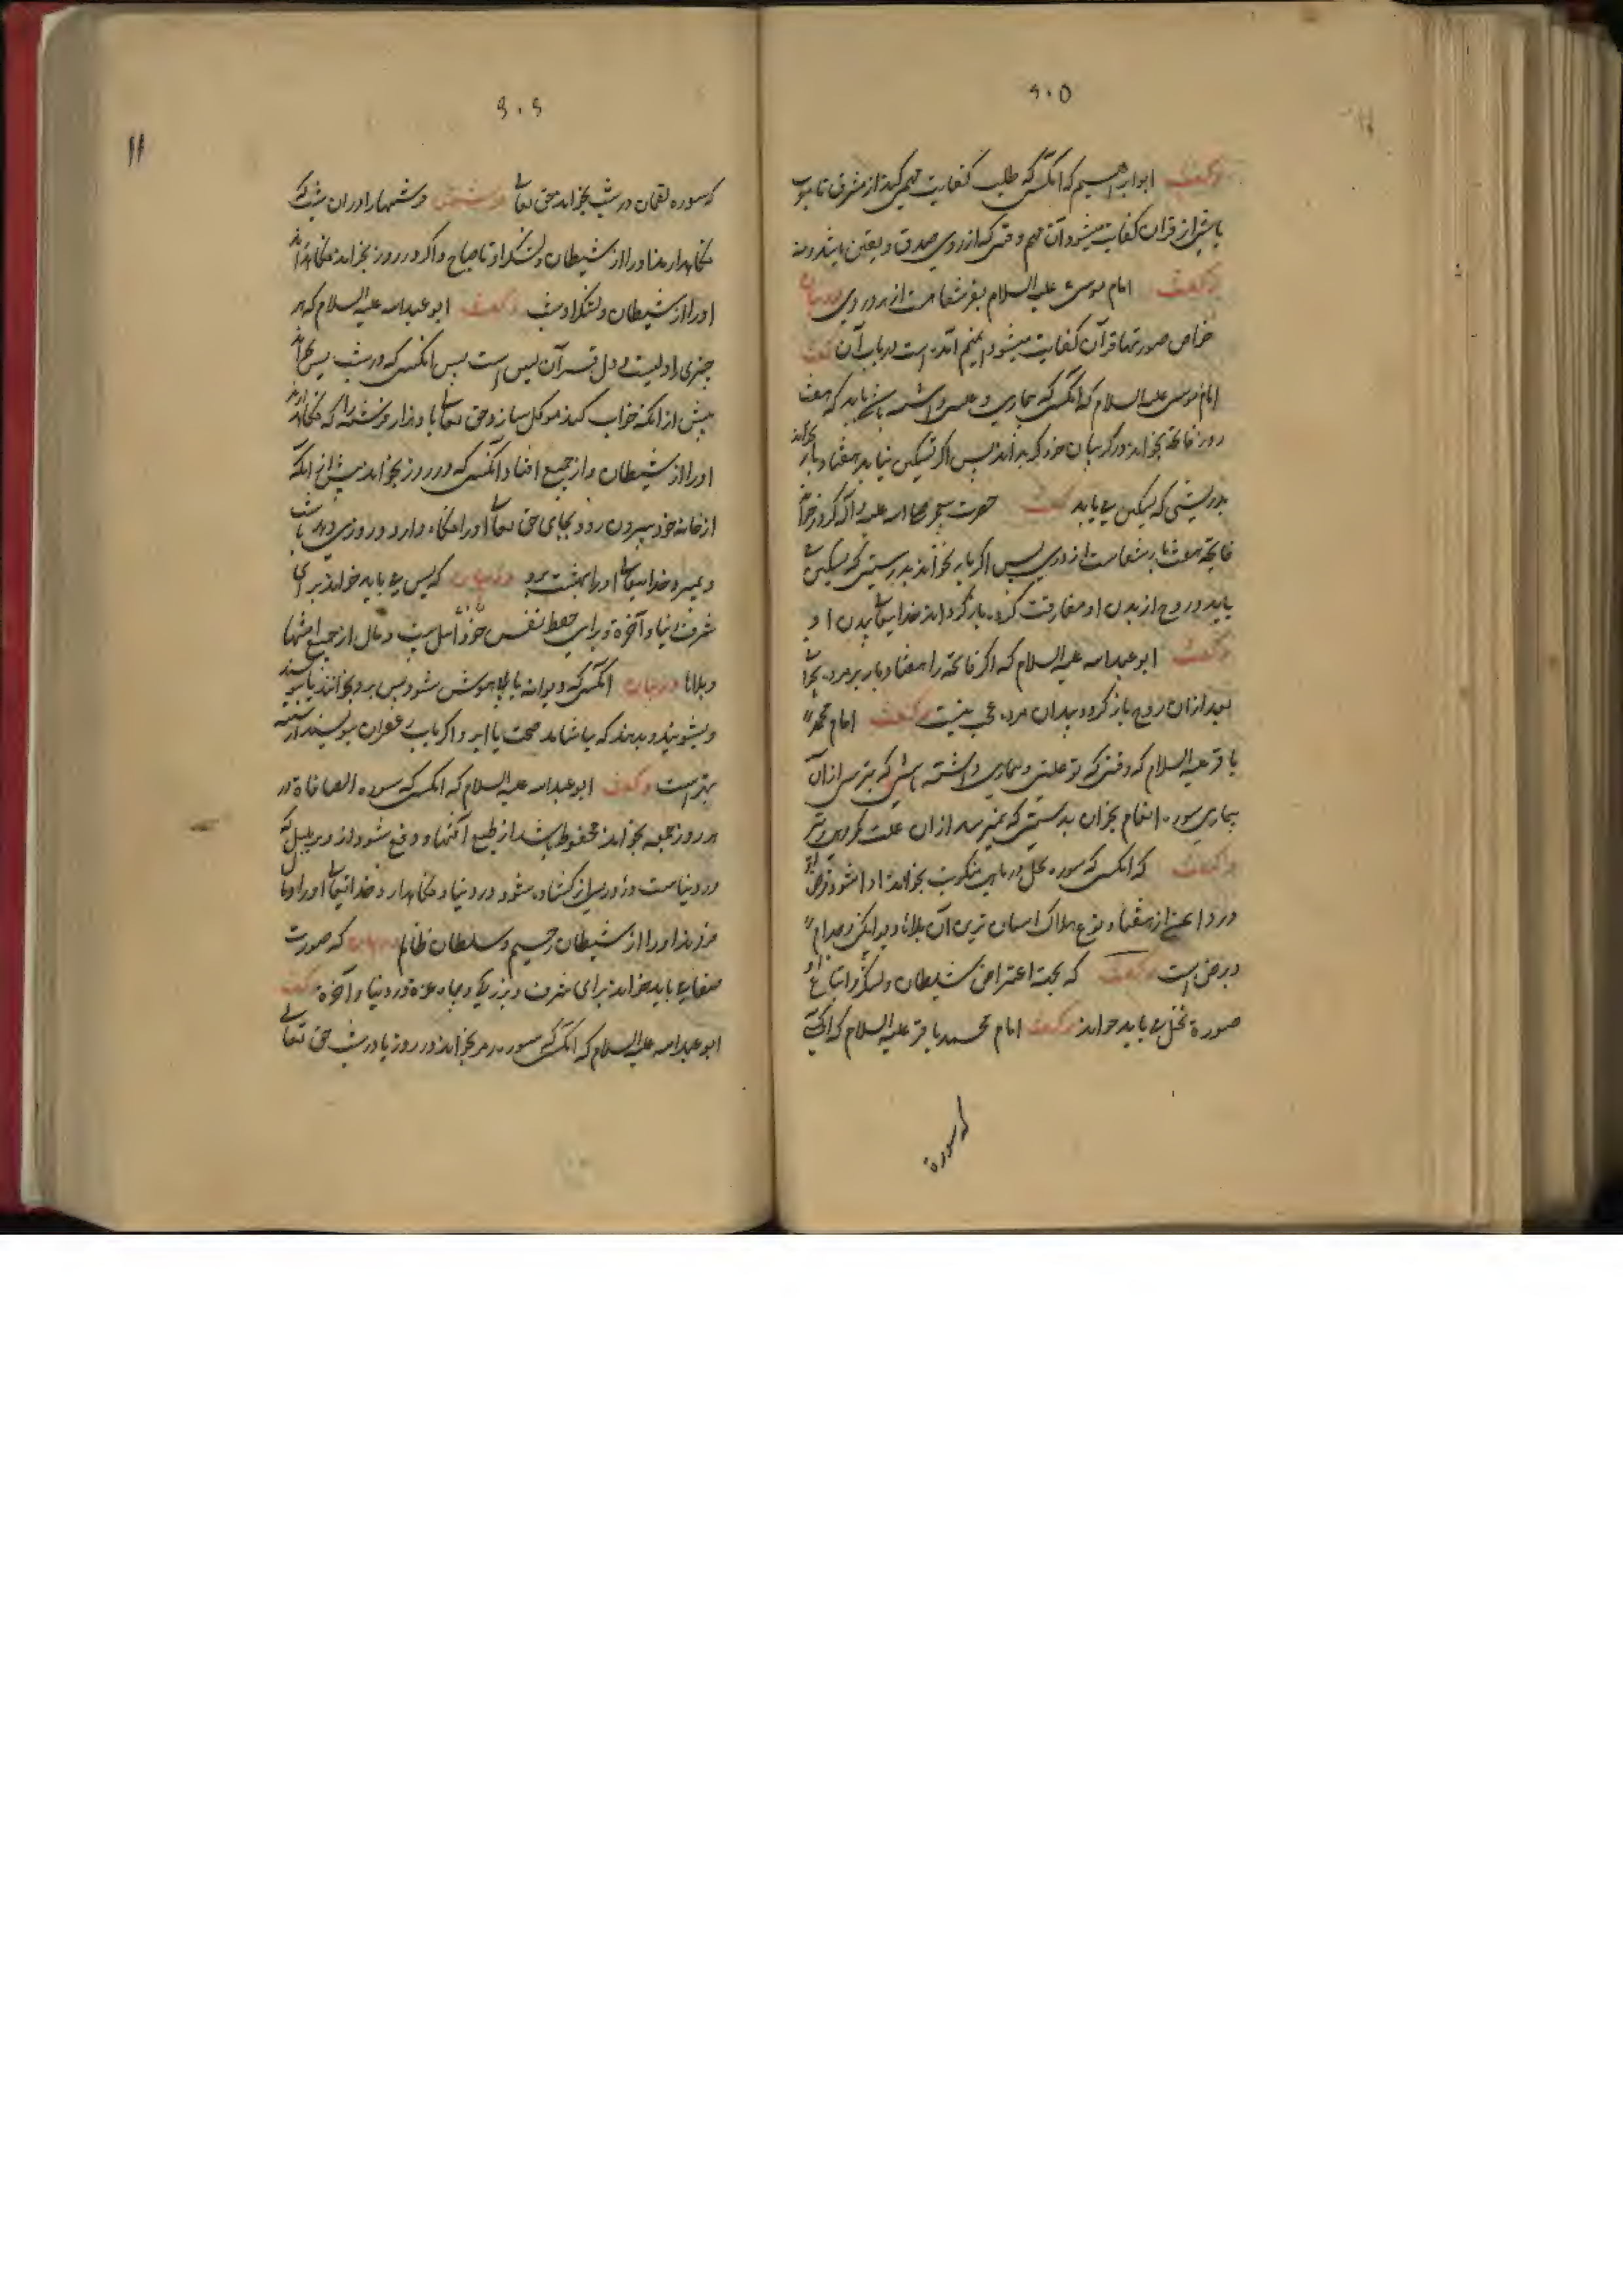 ۶۰۵
وگفت ابو ابراهیم که آنکس که طلب کفایت مهم کند از مشرق تا مغرب
از قرآن کفایت میشود آن مهم وقتی که از روی صدق و یقین باشد
وگفت امام موسی علیه السلام
خواص صورتها قرآن کفایت میشود اینهم آنکه است در باب آن گفت
امام موسی علیه السلام که آنکس که بیماری و علتی داشته باشد باید که هفت
فاتحه بخواند در گریبان خود پس اگر تسکین نیابد هفتاد بار بخواند
بدرستی که تسکین می یابد گفت حضرت علیه وآله که
فاتحه هفت بار شفاست از پس اگر بار بخواند بدرستی که تسکین
یابد و روح از بدن او مفارقت کرده باز گرداند خدایتعالی بدن او
وگفت ابو عبدالله علیه السلام که اگر فاتحه را هفتاد بار بر مرده
بعد از آن روح باز گردد بدان مرده عجب نیست وگفت امام محمد
باقر علیه السلام که وقتی که تو علتی و بیماری داشته باشی که بترسی از آن
بیماری سوره انعام بخوان بدرستی که نمیرسد از آن علت مکروهی بتو
وگفت که آنکس که سوره نحل در ماهی بخواند ادا شود قرض او
از هفتاد نوع هلاک آسان ترین آن بلاها دیوانگی و جذام
و برص است وگفت که بجهة اعتراض شیطان و لشکر و اتباع او
صورة نحل می باید خواند وگفت امام محمد باقر علیه السلام که آنکس
که سوره
۶۰۶
۱۱
که سوره لقمان در شب بخواند حق تعالی فرشتهها را در آن شب
نگاهدارند او را از شیطان و لشکر او تا صباح و اگر در روز بخواند نگاهدارند
او را از شیطان و لشکر او شب وگفت ابو عبدالله علیه السلام که هر
چیزی را دلیست و دل قرآن یس است پس آنکس که در شب یس بخواند
پیش از آنکه خواب کند موکل سازد حق تعالی با و هزار فرشته را که نگاهدارند
او را از شیطان و از جمیع آفتها و آنکس که در روز بخواند پیش از آنکه
از خانه خود بیرون رود بجای حق تعالی او را نگاه دارد و روزی
و بمیرد خدایتعالی او را بهشت برد که یس می باید خواند برای
شرف دنیا و آخرة و برای حفظ نفس خود و اهل بیت و مال از جمیع آفتها
و بلاها آنکس که دیوانه یا بیهوش شود یس برو بخوانند یا بنویسند
و بشویند و بدهند که بیاشامد صحت یابد و اگر بآب زعفران بنویسند
بهتر است وگفت ابو عبدالله علیه السلام که آنکس که سوره الصافات در
هر روز جمعه بخواند محفوظ باشد از جمیع آفتها و دفع شود از و هر بلیه که
در دنیاست و روزی او گشاده شود در دنیا و نگاهدارد خدایتعالی او را و مال
فرزند او را از شیطان رجیم و سلطان ظالم که صورت
صفات باید خواند برای شرف و بزرگی و جاه و عزة در دنیا و آخرة گفت
ابو عبدالله علیه السلام که آنکس که سوره زمر بخواند در روز یا در شب حق تعالی